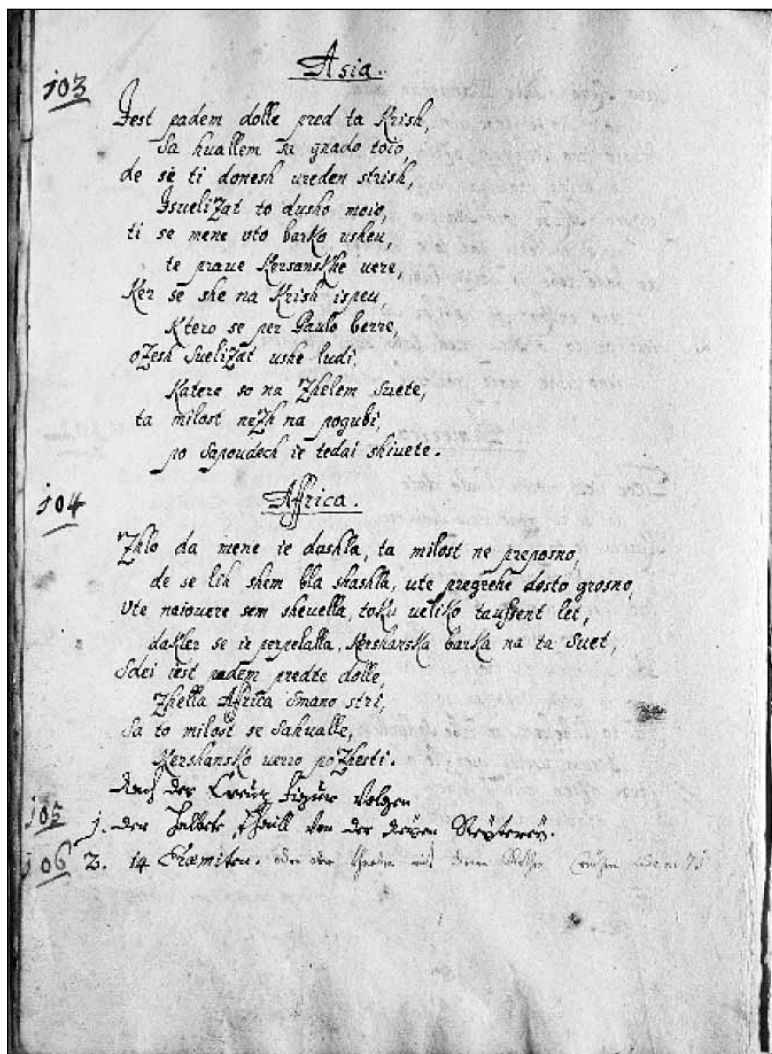 Asia.
103
Jest padem dolle pred ta Krish,
Sa huallem to gnado toio,
de se ti donesh ureden strish,
Isuelizat to dusho moio,
ti se mene uto barko usheu,
te praue Kersanskhe uere,
Ker se she na Krish ispeu,
Ktero se per Paulo berre,
ozesh Suelizat ushe ludi,
Katere so na Zhelem Suete,
ta milost nezh na pogubi,
po Sapoudech ie tedai shiuete.
104
Affrica.
Zhlo da mene ie dashla, ta milost ne preposno,
de se lih shem bla shashla, ute pregrehe dosto grosno,
Ute naiouere sem sheuella, toku ueliko taussent let,
dakler se ie perpelalla, Kershanska barka na ta Suet,
Sdei iest padem predte dolle,
Zhella Africa Smano stri,
Sa to milost se Sahualle,
Kershansko uerro pozhesti.
Nach der Creutz Figur Volgen
105 1. der halbete Thaill von der Reyterey.
106 2. 14 Eremiten. oder